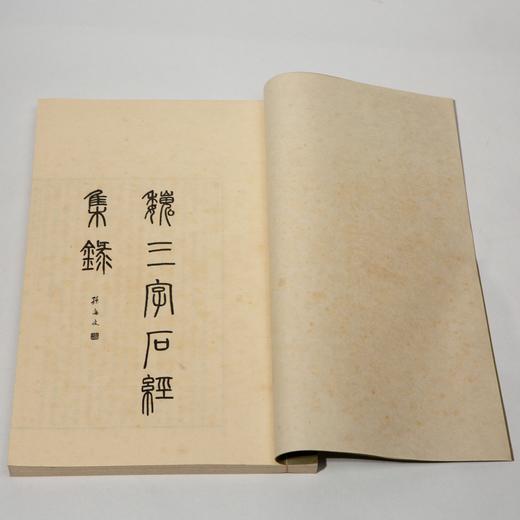 魏三字石經
集錄
孫海波